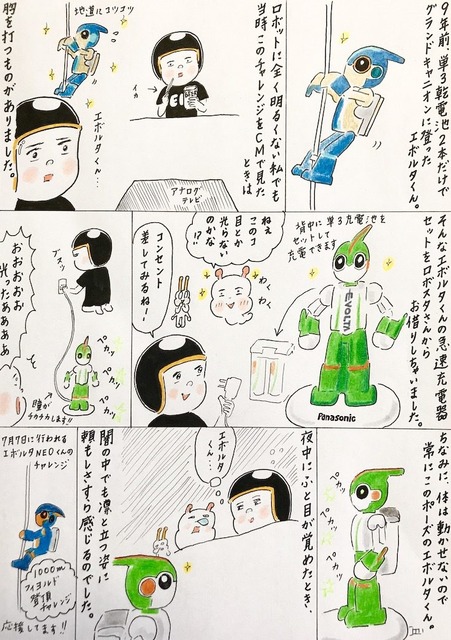 9年前、単3乾電池2本だけで
グランドキャニオンに登った
エボルタくん。
ロボットに全く明るくない私でも
当時このチャレンジをCMで見た
ときは
イカ
アナログ
テレビ
地道にコツコツ
エボルタくん…
胸を打つものがありました。
そんなエボルタくんの急速充電器
セットをロボスタさんから
お借りしちゃいました。
背中に単3充電池を
セットして
充電できます
EVOLTA
Panasonic
わくわく
ねえ
このコ
光らない
のかな
!?
コンセント
差してみるね!!
ブスッ
ペカッ
ペカッ
ペカッ
瞳が
チカチカします!!
おおおおお
光ったぁぁぁぁ
ちなみに、体は動かせないので
常にこのポーズのエボルタくん。
ペカッ
ペカッ
ペカッ
夜中にふと目が覚めたとき、
エボルタ
くん…
闇の中でも凛と立つ姿に
頼もしさすら感じるのでした。
7月7日に行われる
エボルタNEOくんの
チャレンジ
1000m
フィヨルド
登頂
チャレンジ
応援してます!!